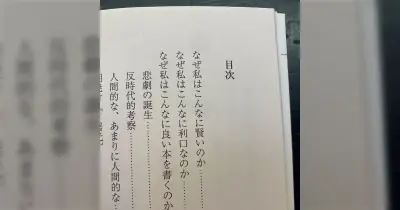 目次
なぜ私はこんなに賢いのか………
なぜ私はこんなに利口なのか………
なぜ私はこんなに良い本を書くのか
悲劇の誕生………
反時代的考察………
人間的な、あまりに人間的な…